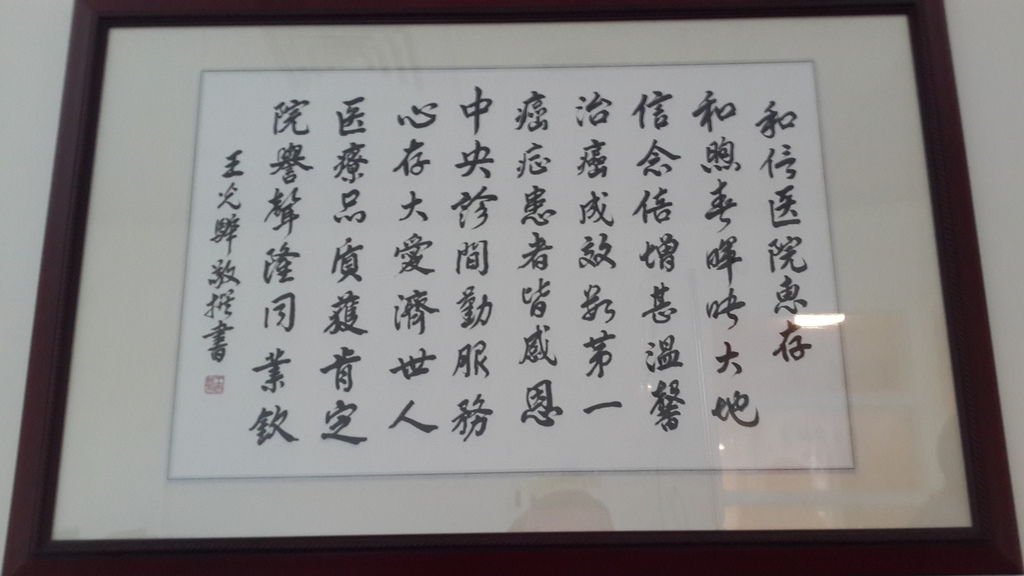 和信医院惠存
和煦春暉映大地
信念倍增甚溫馨
治癌成效影第一
癌症患者皆感恩
中央診間勤服務
心存大愛濟世人
医療品质獲肯定
院譽聲隆同業欽
王光暉敬撰書